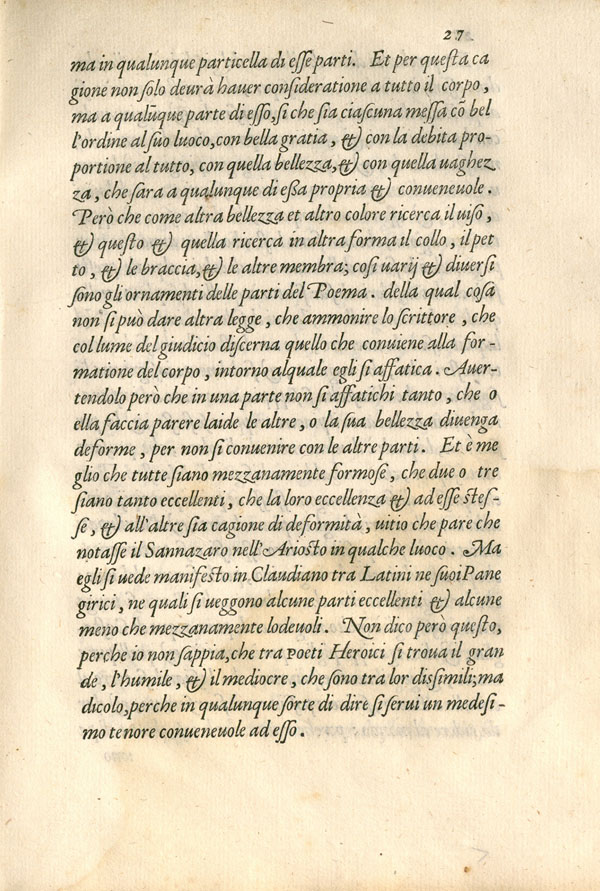 27
ma in qualunque particella di esse parti. Et per questa ca
gione non solo deurà hauer consideratione a tutto il corpo,
ma a qualūque parte di esso, si che sia ciascuna messa cō bel
l'ordine al suo luoco, con bella gratia, & con la debita pro-
portione al tutto, con quella bellezza, & con quella uaghez
za, che sara a qualunque di essa propria & conueneuole.
Però che come altra bellezza et altro colore ricerca il uiso,
& questo & quella ricerca in altra forma il collo, il pet
to, & le braccia, & le altre membra; cosi uarij & diuersi
sono gli ornamenti delle parti del Poema. della qual cosa
non si può dare altra legge, che ammonire lo scrittore, che
col lume del giudicio discerna quello che conuiene alla for-
matione del corpo, intorno alquale egli si affatica. Auer-
tendolo però che in una parte non si affatichi tanto, che o
ella faccia parere laide le altre, o la sua bellezza diuenga
deforme, per non si conuenire con le altre parti. Et è me
glio che tutte siano mezzanamente formose, che due o tre
siano tanto eccellenti, che la loro eccellenza & ad esse stes-
se, & all'altre sia cagione di deformità, uitio che pare che
notasse il Sannazaro nell'Ariosto in qualche luoco. Ma
egli si uede manifesto in Claudiano tra Latini ne suoi Pane
girici, ne quali si ueggono alcune parti eccellenti & alcune
meno che mezzanamente lodeuoli. Non dico però questo,
perche io non sappia, che tra Poeti Heroici si troua il gran
de, l'humile, & il mediocre, che sono tra lor dissimili; ma
dicolo, perche in qualunque sorte di dire si serui un medesi-
mo tenore conueneuole ad esso.